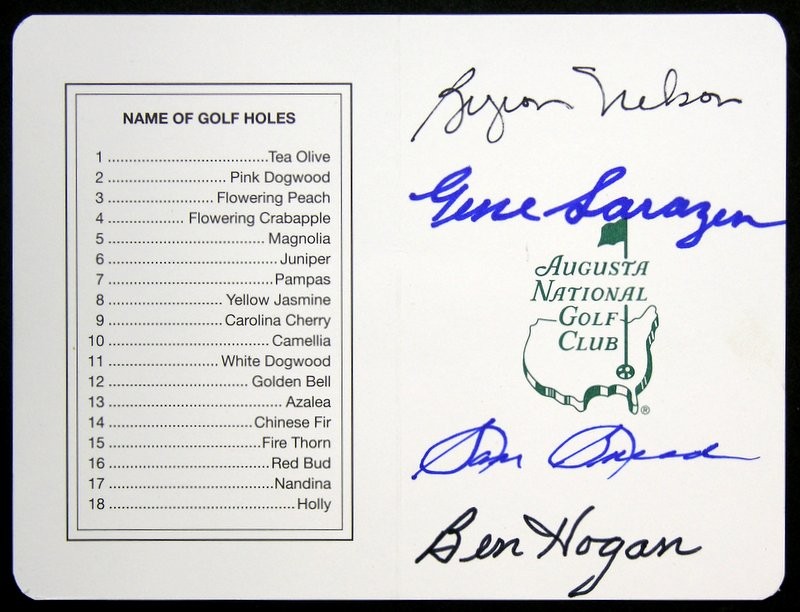 NAME OF GOLF HOLES
1 ........................................Tea Olive
2 ............................. Pink Dogwood
3 .......................... Flowering Peach
4 ................... Flowering Crabapple
5 ....................................... Magnolia
6 ...........................................Juniper
7 ..........................................Pampas
8 ............................ Yellow Jasmine
9 ............................ Carolina Cherry
10 ........................................ Camellia
11 ........................... White Dogwood
12 ................................... Golden Bell
13 ............................................ Azalea
14 .................................... Chinese Fir
15 ......................................Fire Thorn
16 ........................................Red Bud
17 .........................................Nandina
18 ..............................................Holly
Byron Nelson
Gene Sarazen
AUGUSTA
NATIONAL
GOLF
CLUB
®
Sam Snead
Ben Hogan